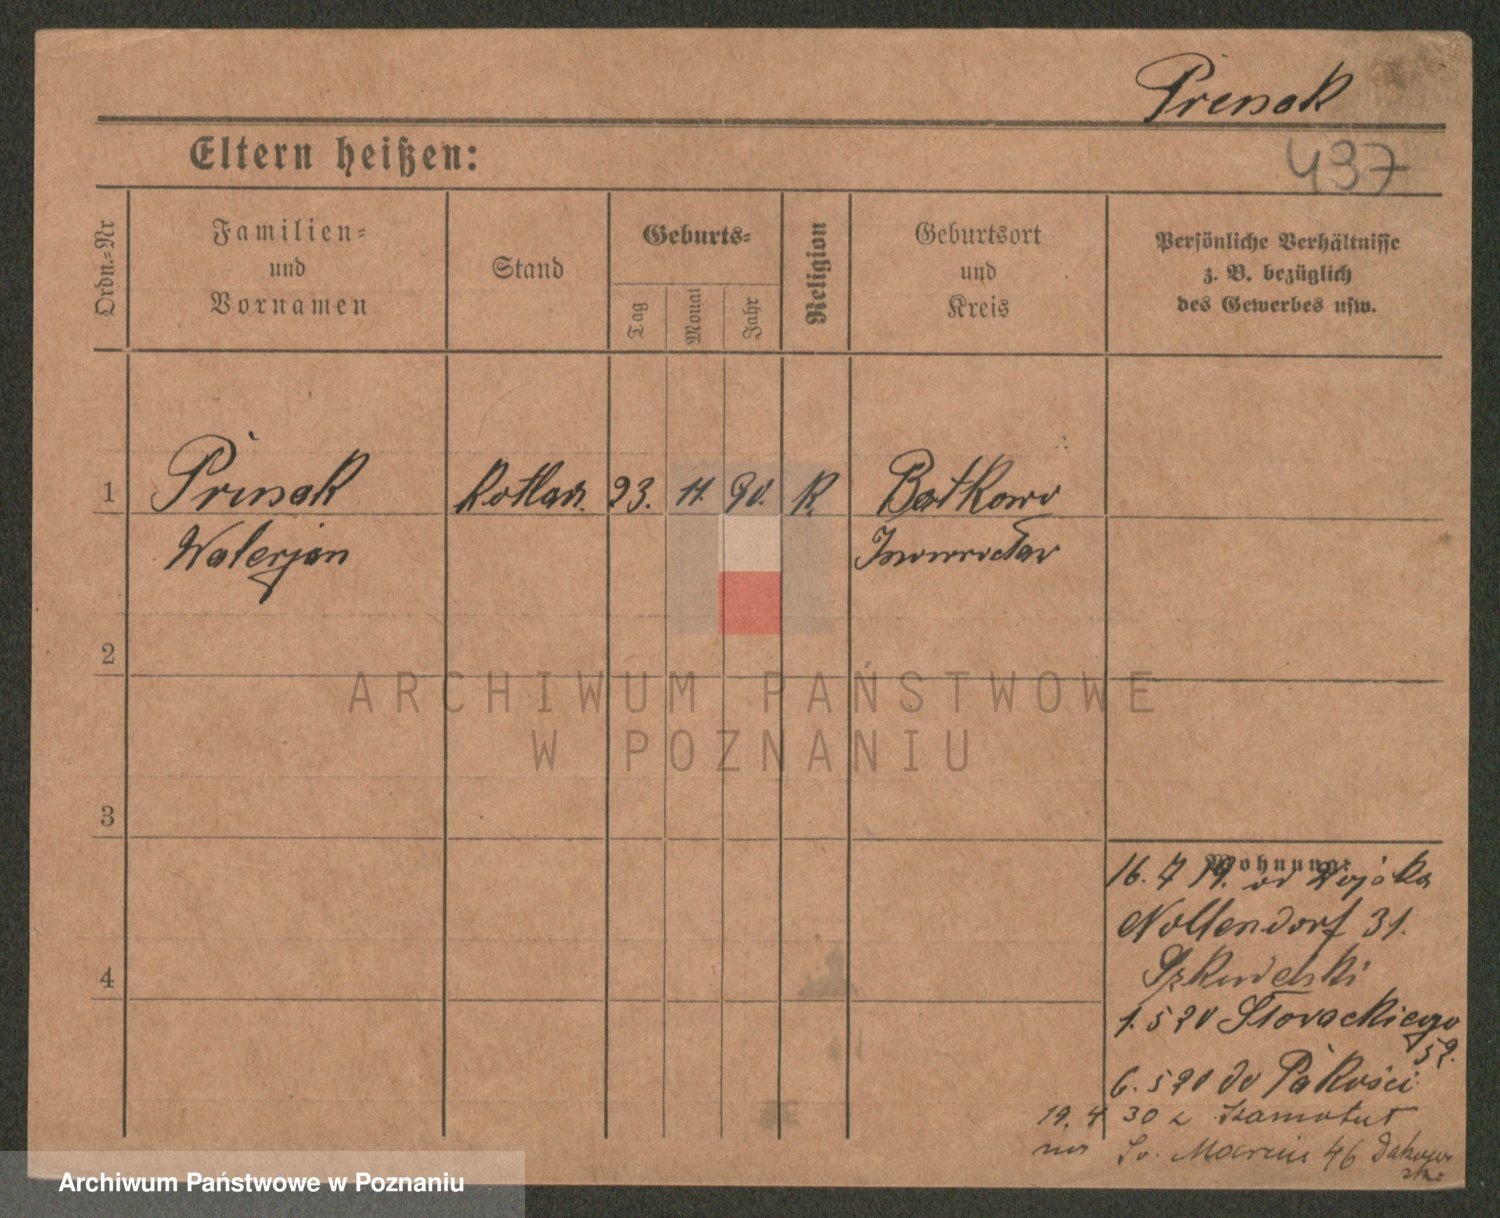 Prensak
437
Eltern heißen:
Ordn.-Nr
Familien-
und
Vornamen
Stand
Geburts-
Tag
Monat
Jahr
Religion
Geburtsort
und
Kreis
Persönliche Verhältnisse
z. B. bezüglich
des Gewerbes usw.
1
Prensak
Kotlarz.
23.
11.
90.
R.
Batkowo
Walerjan
Inowrocław
2
ARCHIWUM PAŃSTWOWE
W POZNANIU
3
Wohnung:
16. 7 19. od Wojska
Nollendorf 31.
4
1. 5 20 Słowackiego
52.
6. 5 20 do Pakości
19. 4 30 z Szamotuł
na Św. Marcin 46
Archiwum Państwowe w Poznaniu